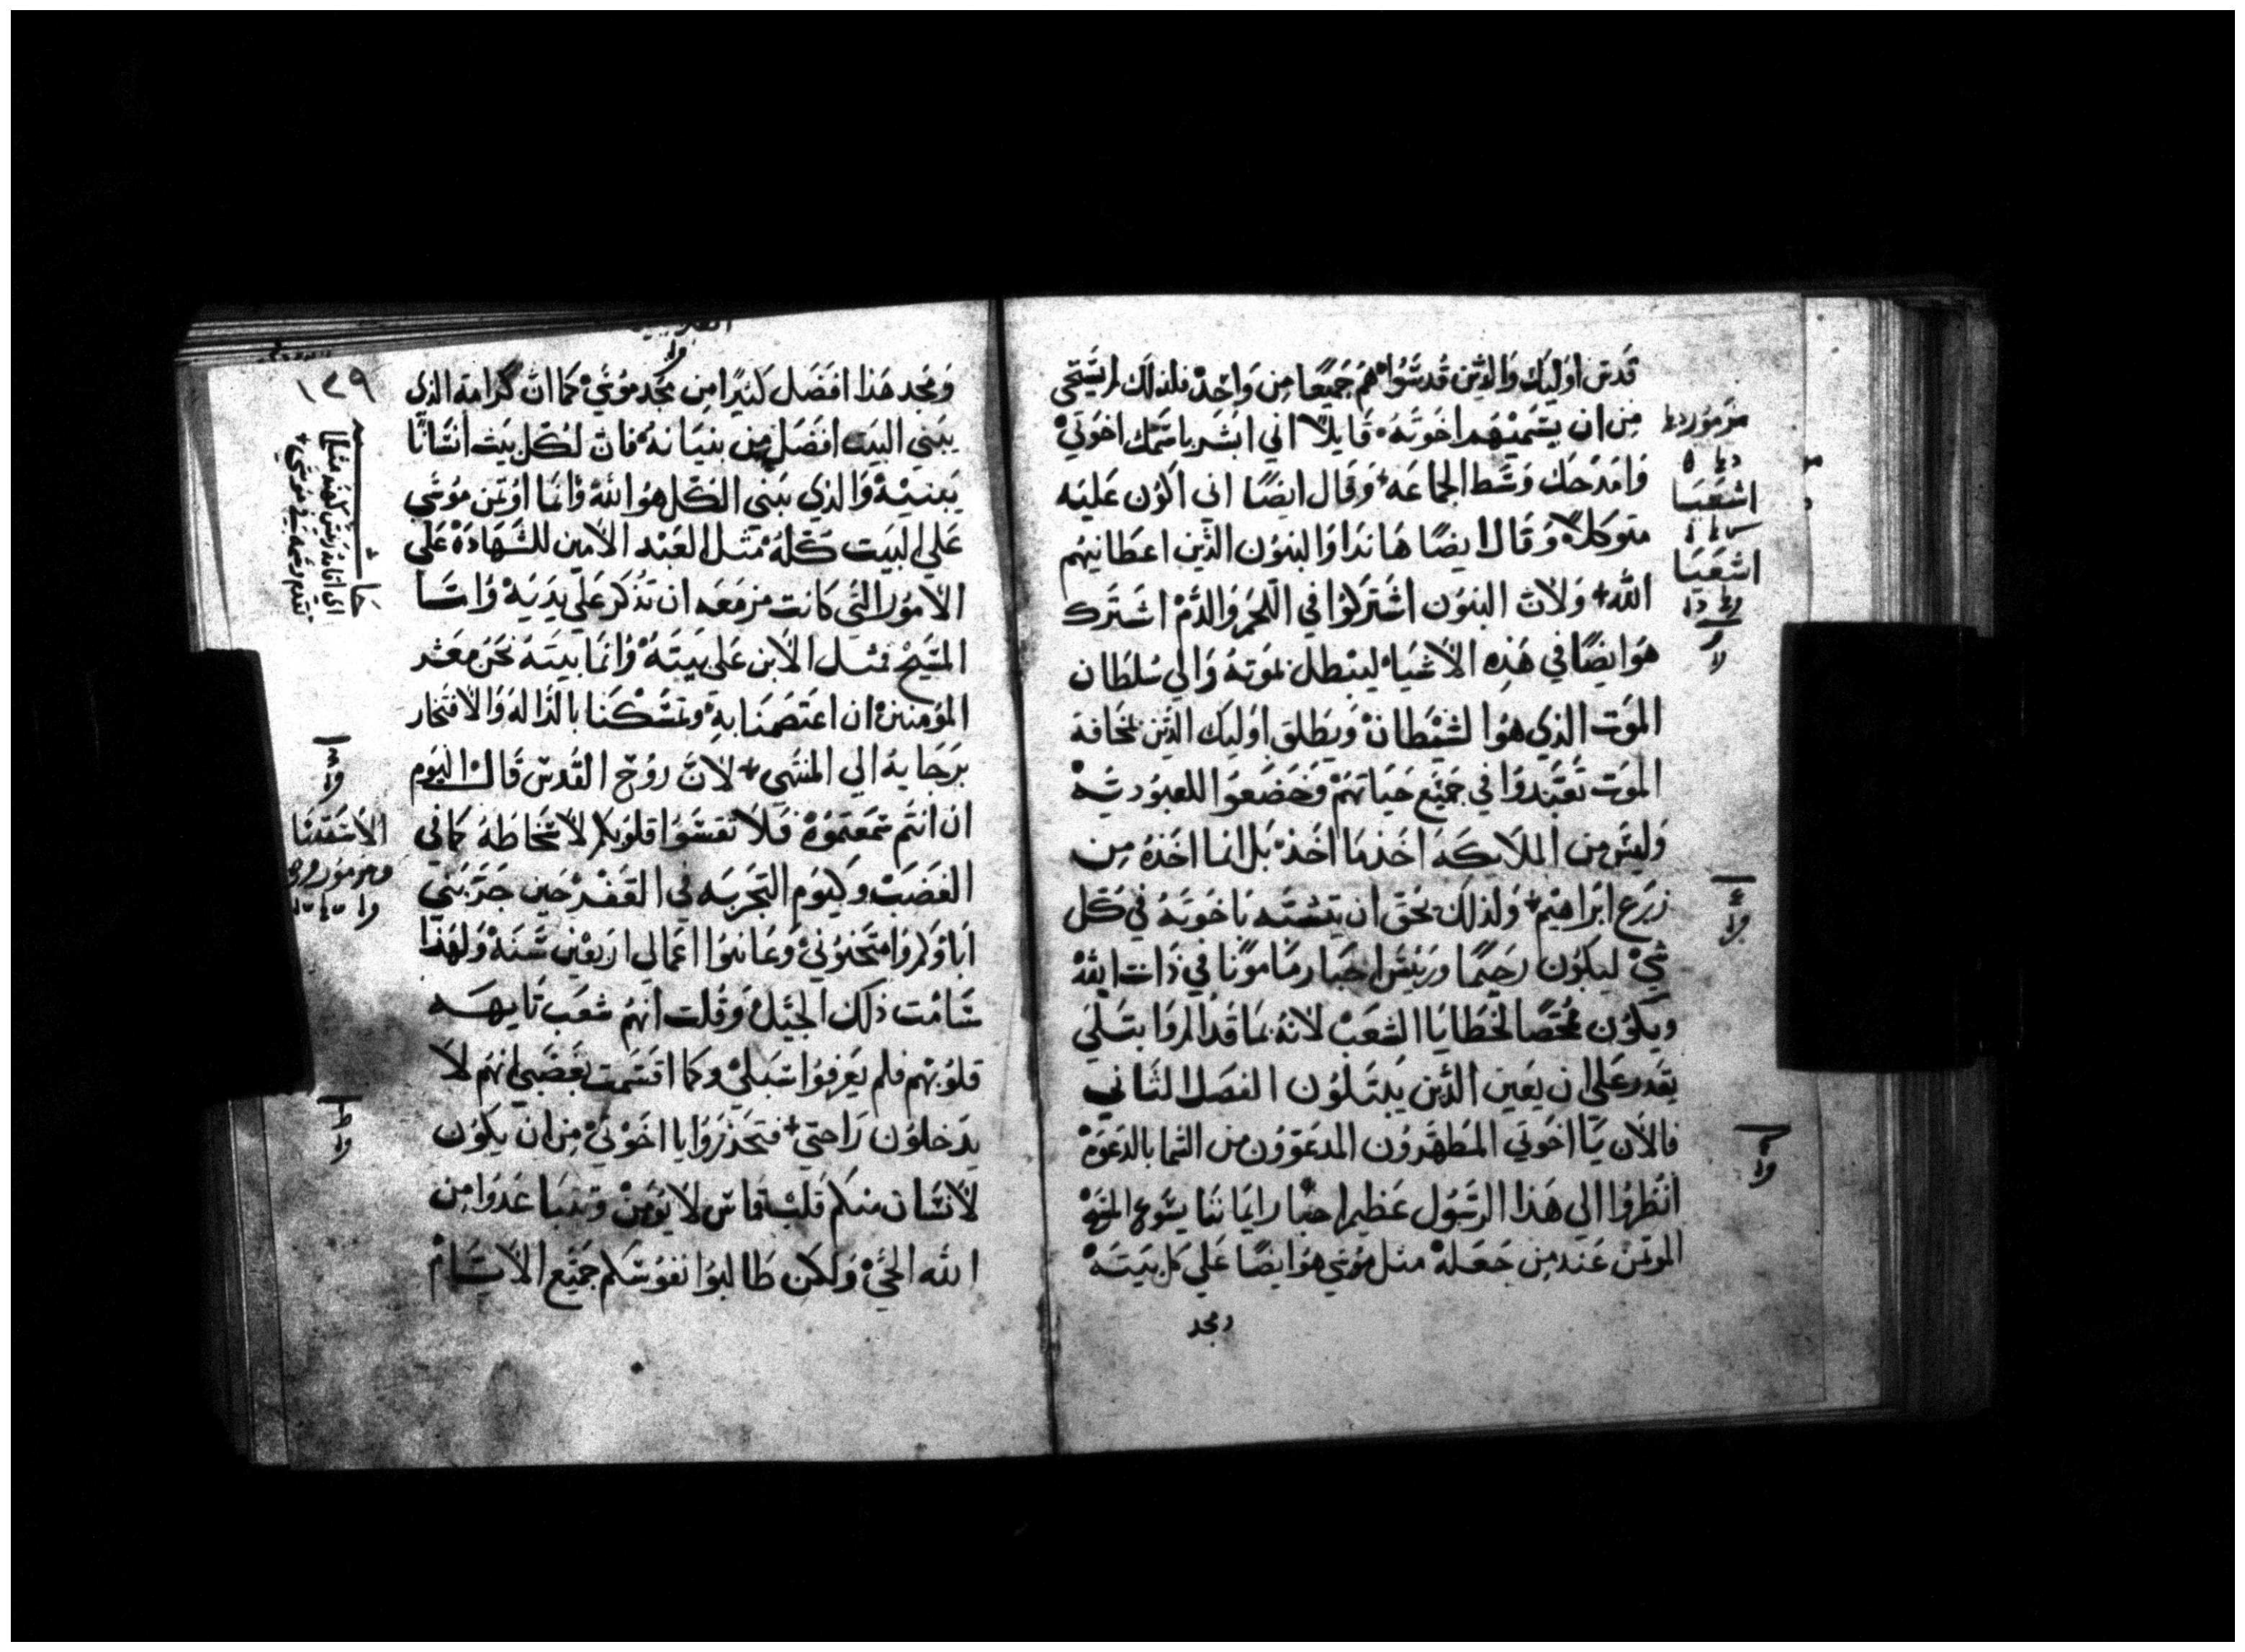 قدس اوليك والذين قدسوا هم جميعا من واحد فلذلك لم يستحي
من ان يسميهم اخوته قايلا اني ابشر باسمك اخوتي
وامدحك وسط الجماعه وقال ايضا اني اكون عليه
متوكلا وقال ايضا هانذا والبنون الذين اعطانيهم
الله ولان البنون اشتركوا في اللحم والدم اشترك
هو ايضا في هذه الاشيا ليبطل بموته والي سلطان
الموت الذي هو الشيطان ويطلق اوليك الذين بمخافة
الموت تعبدوا في جميع حياتهم وخضعوا للعبوديه
وليس من الملايكة اخذ ما اخذ بل انما اخذه من
زرع ابراهيم ولذلك بحق ان يتشبه باخوته في كل
شي ليكون رحيما وريس احبار مامونا في ذات الله
ويكون ممحصا لخطايا الشعب لانه بما قد الم وابتلي
يقدر علي ان يعين الذين يبتلون الفصل الثاني
فالان يا اخوتي المطهرون المدعوون من السما بالدعوة
انظروا الي هذا الرسول عظيم احبار ايماننا يسوع المسيح
الموتمن عند من جعله مثل موسي هو ايضا علي كل بيته
ومجد
مزمور
اشعيا
اشعيا
١٣٩
ومجد هذا افضل كثيرا من مجد موسي كما ان كرامة الذي
يبني البيت افضل من بنيانه فان لكل بيت انسانا
يبنيه والذي يبني الكل هو الله وانما اوتمن موسي
علي البيت كله مثل العبد الامين للشهادة علي
الامور التي كانت مزمعه ان تذكر علي يديه واما
المسيح فمثل الابن علي بيته وانما بيته نحن معشر
المومنين ان اعتصمنا به وتمسكنا بالداله والافتخار
برجايه الي المنتهي لان روح القدس قال اليوم
ان انتم سمعتموه فلا تقسوا قلوبكم لاسخاطه كما في
الغضب وكيوم التجربه في القفر حين جربني
اباوكم وامتحنوني وعاينوا اعمالي اربعين سنة ولهذا
سامت ذلك الجيل وقلت انهم شعب تايهه
قلوبهم فلم يعرفوا سبلي وكما اقسمت بغضبي انهم لا
يدخلون راحتي فتحذروا يا اخوتي من ان يكون
لانسان منكم قلب قاس لا يومن وتبتعدوا من
الله الحي ولكن طالبوا نفوسكم جميع الايام
الاستثنا
ومزمور